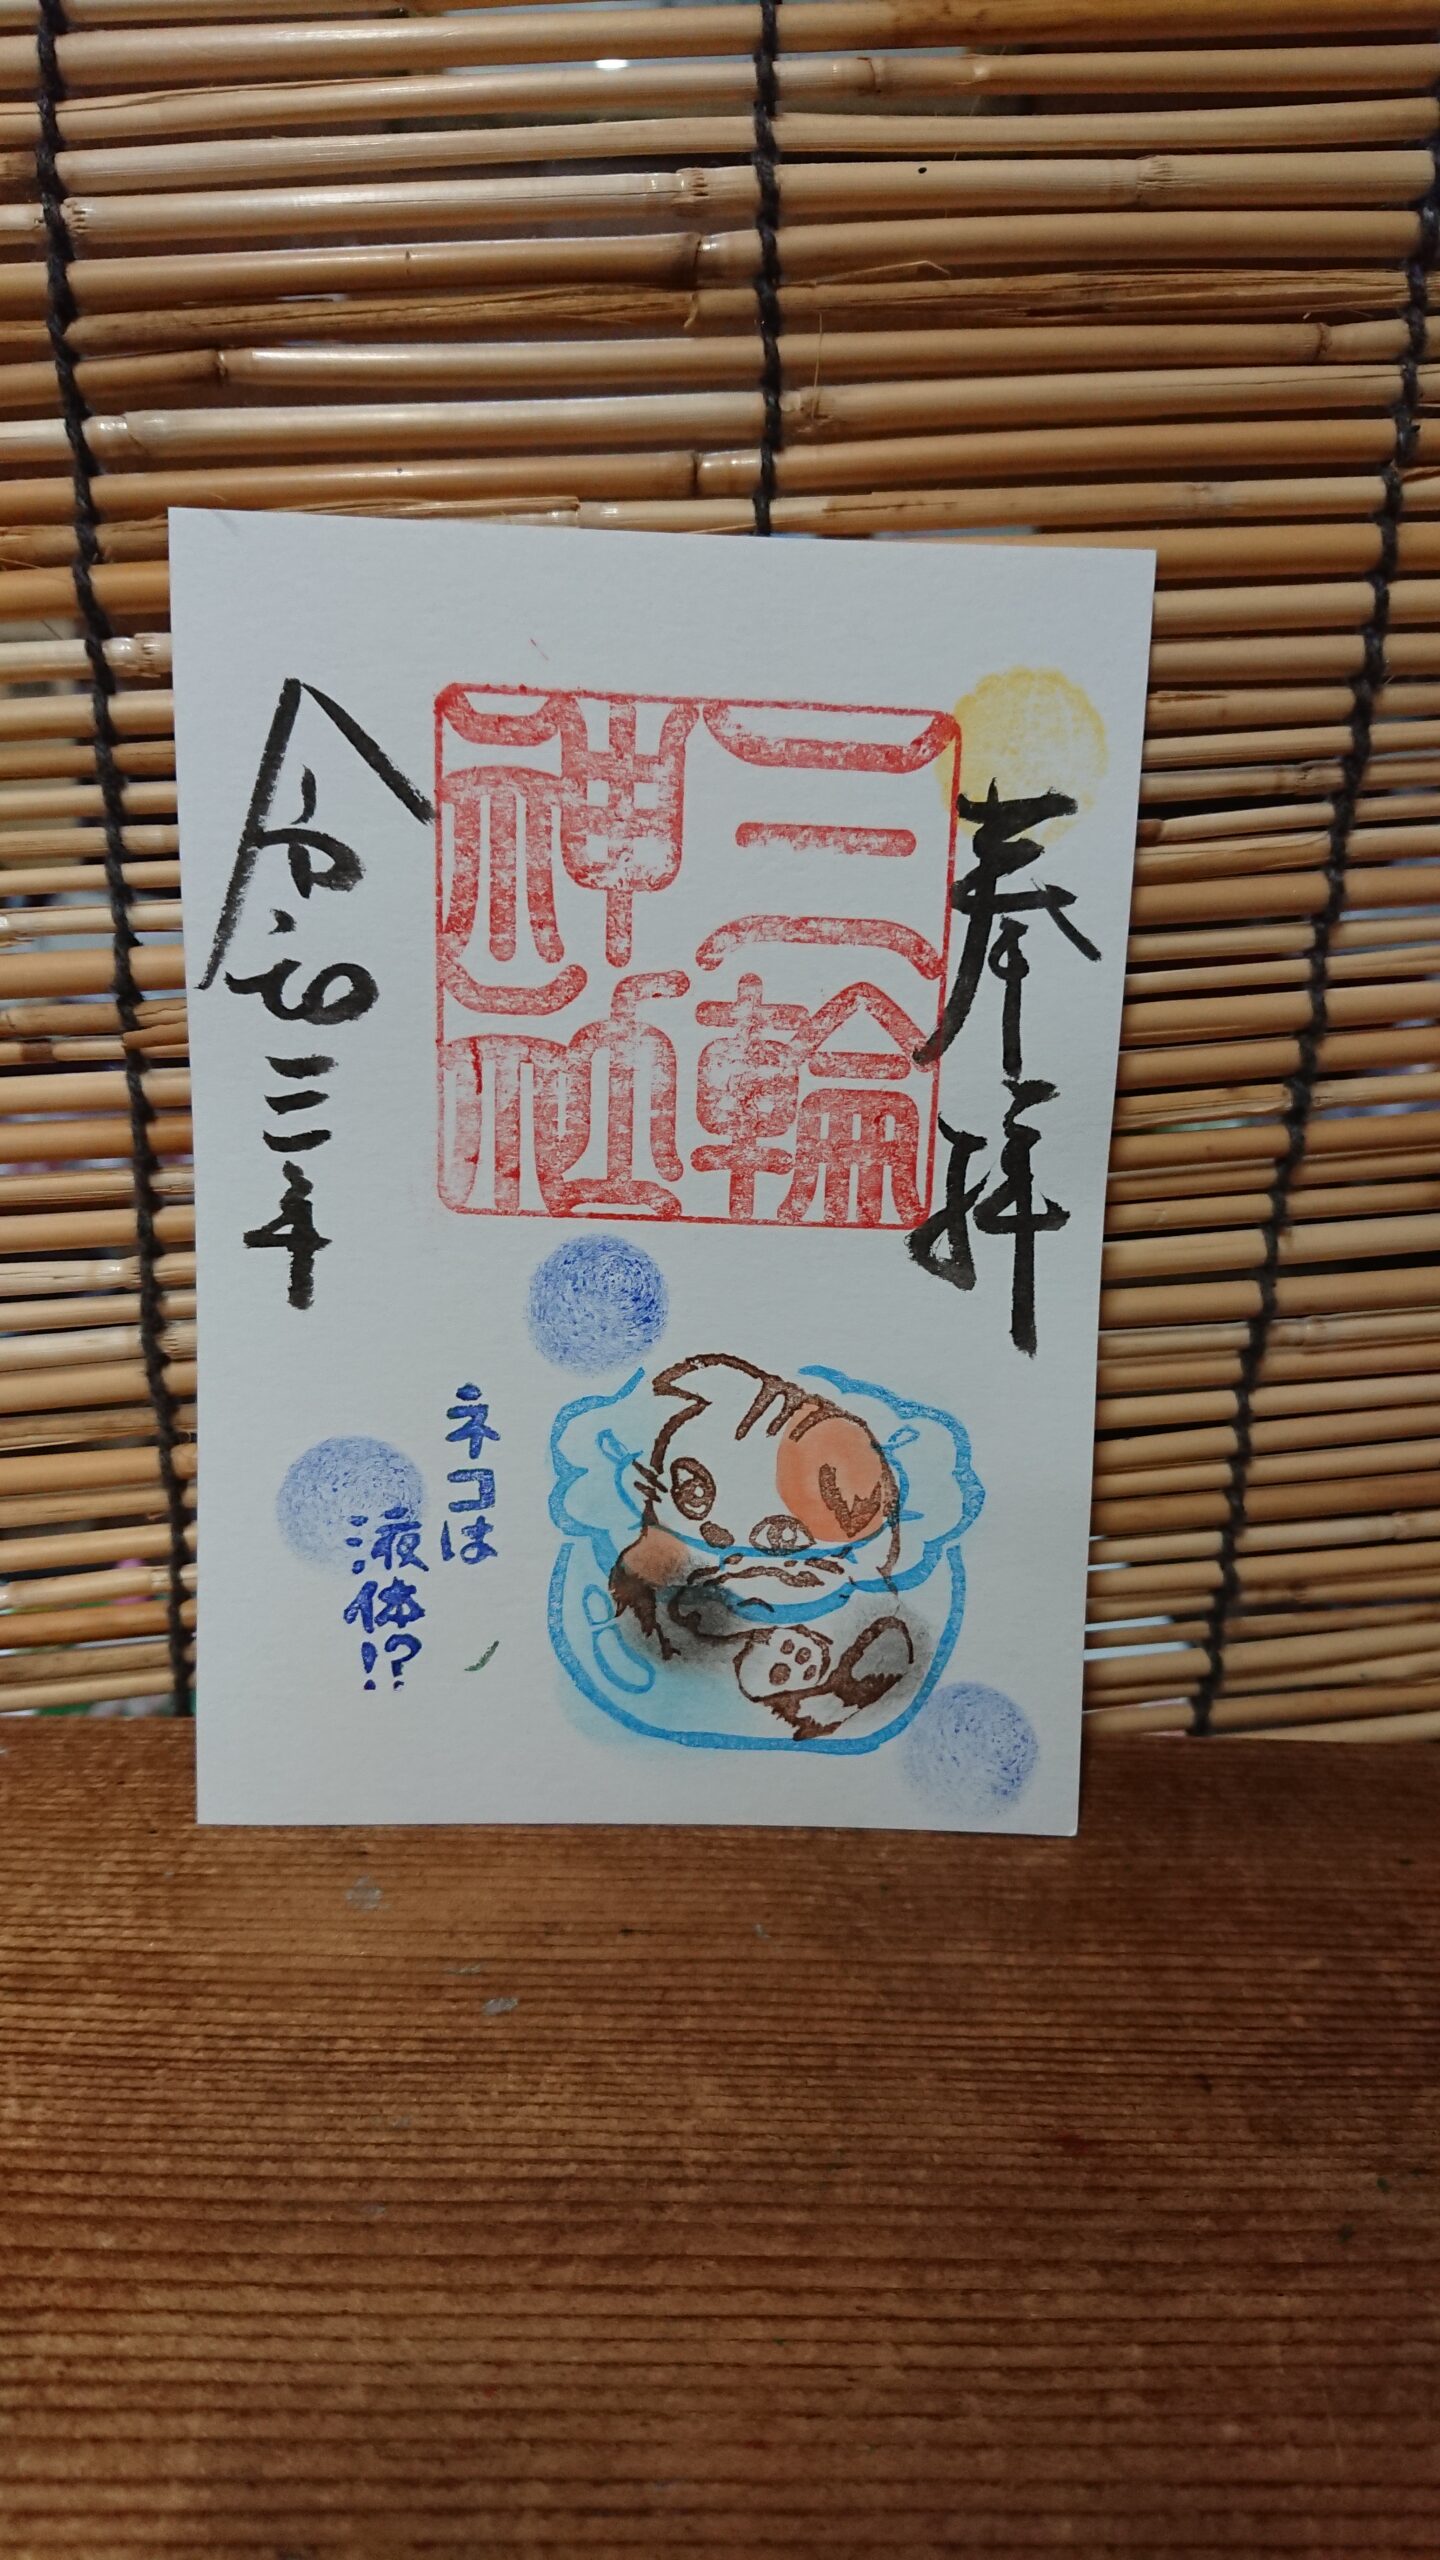 奉拝
三輪
神社
令和三年
ネコは
液体!?